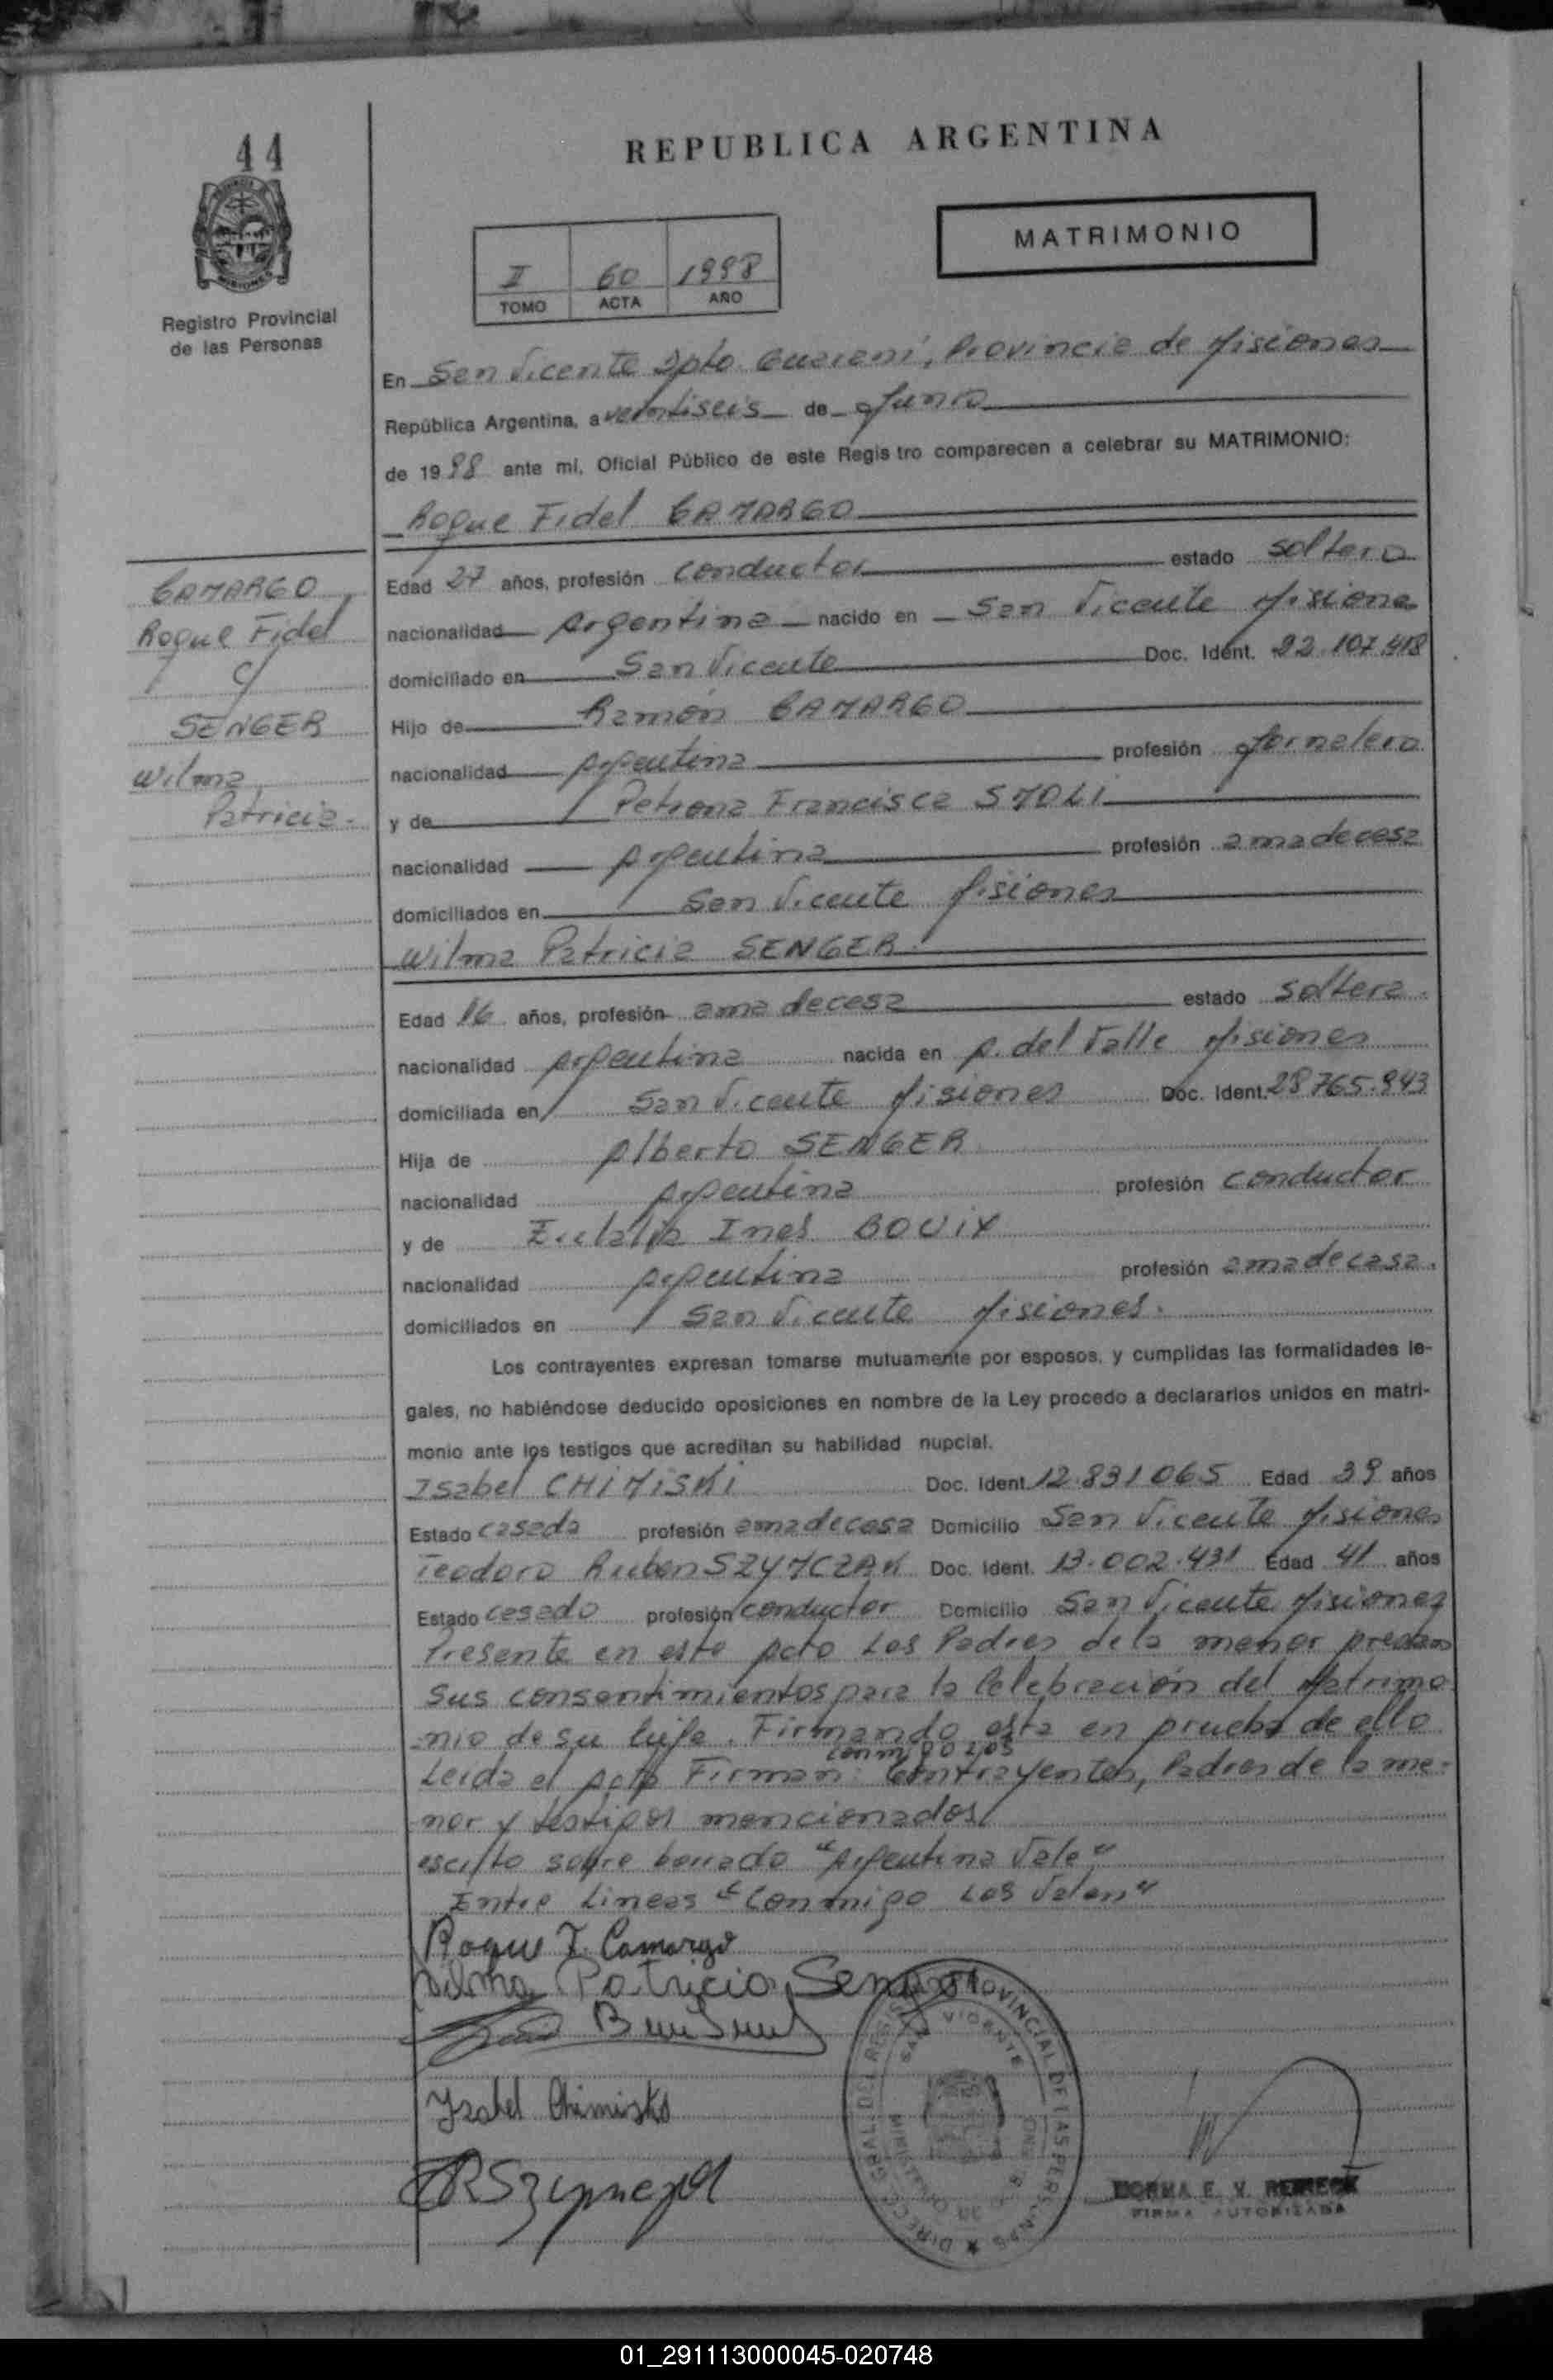 44
REPUBLICA ARGENTINA
MATRIMONIO
II 60 1998
TOMO ACTA AÑO
Registro Provincial
de las Personas
En San Vicente Dpto. Guaraní, Provincia de Misiones
República Argentina, a veintiseis de Junio
de 1998 ante mi, Oficial Público de este Regis tro comparecen a celebrar su MATRIMONIO:
Roque Fidel CAMARGO
CAMARGO
Roque Fidel
y
SENGER
Wilma
Patricia.
Edad 27 años, profesión conductor estado soltero
nacionalidad Argentina nacido en San Vicente Misiones
domiciliado en San Vicente Doc. Ident. 22.107.418
Hijo de Ramón CAMARGO
nacionalidad Argentina profesión Jornalero
y de Petrona Francisca SMOLI
nacionalidad Argentina profesión ama de casa
domiciliados en San Vicente Misiones
Wilma Patricia SENGER.
Edad 16 años, profesión ama de casa estado soltera.
nacionalidad Argentina nacida en A. del Valle Misiones
domiciliada en San Vicente Misiones Doc. Ident. 28765.943
Hija de Alberto SENGER
nacionalidad Argentina profesión conductor
y de Eulalia Ines BOUIX
nacionalidad Argentina profesión ama de casa.
domiciliados en San Vicente Misiones.
Los contrayentes expresan tomarse mutuamente por esposos, y cumplidas las formalidades le-
gales, no habiéndose deducido oposiciones en nombre de la Ley procedo a declararlos unidos en matri-
monio ante los testigos que acreditan su habilidad nupcial.
Isabel CHIMISKI Doc. Ident. 12.831065 Edad 39 años
Estado casada profesión ama de casa Domicilio San Vicente Misiones
Teodoro Ruben SZYMCZAK Doc. Ident. 13.002.431 Edad 41 años
Estado casado profesión conductor Domicilio San Vicente Misiones
Presente en este Acto Los Padres de la menor
sus consentimientos para la Celebración del Matrimo
nio de su hija. Firmando esta en prueba de ello
conmigo Los
Leida el Acta Firman: Contrayentes, Padres de la me-
nor y testigos mencionados
escrito sobre borrado "Argentina Vale"
Entre Lineas "Conmigo Los Valen"
Roque F. Camargo
Wilma Patricia Senger
Isabel Chimiski
DIRECC. GRAL. DEL REGISTRO PROVINCIAL DE LAS PERSONAS
SAN VICENTE
NORMA E. V.
FIRMA AUTORIZADA
01_291113000045-020748